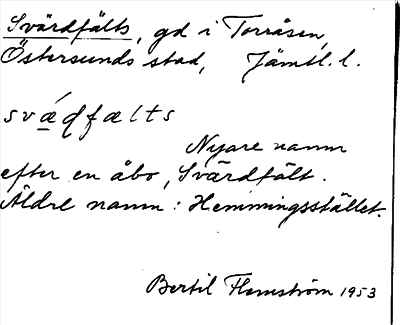 Svärdfälts, gd i Torråsen,
Östersunds stad, Jämtl. l.
sváḍfælts
Nyare namn
efter en åbo, Svärdfält.
Äldre namn: Hemmingsstället.
Bertil Flemström 1953